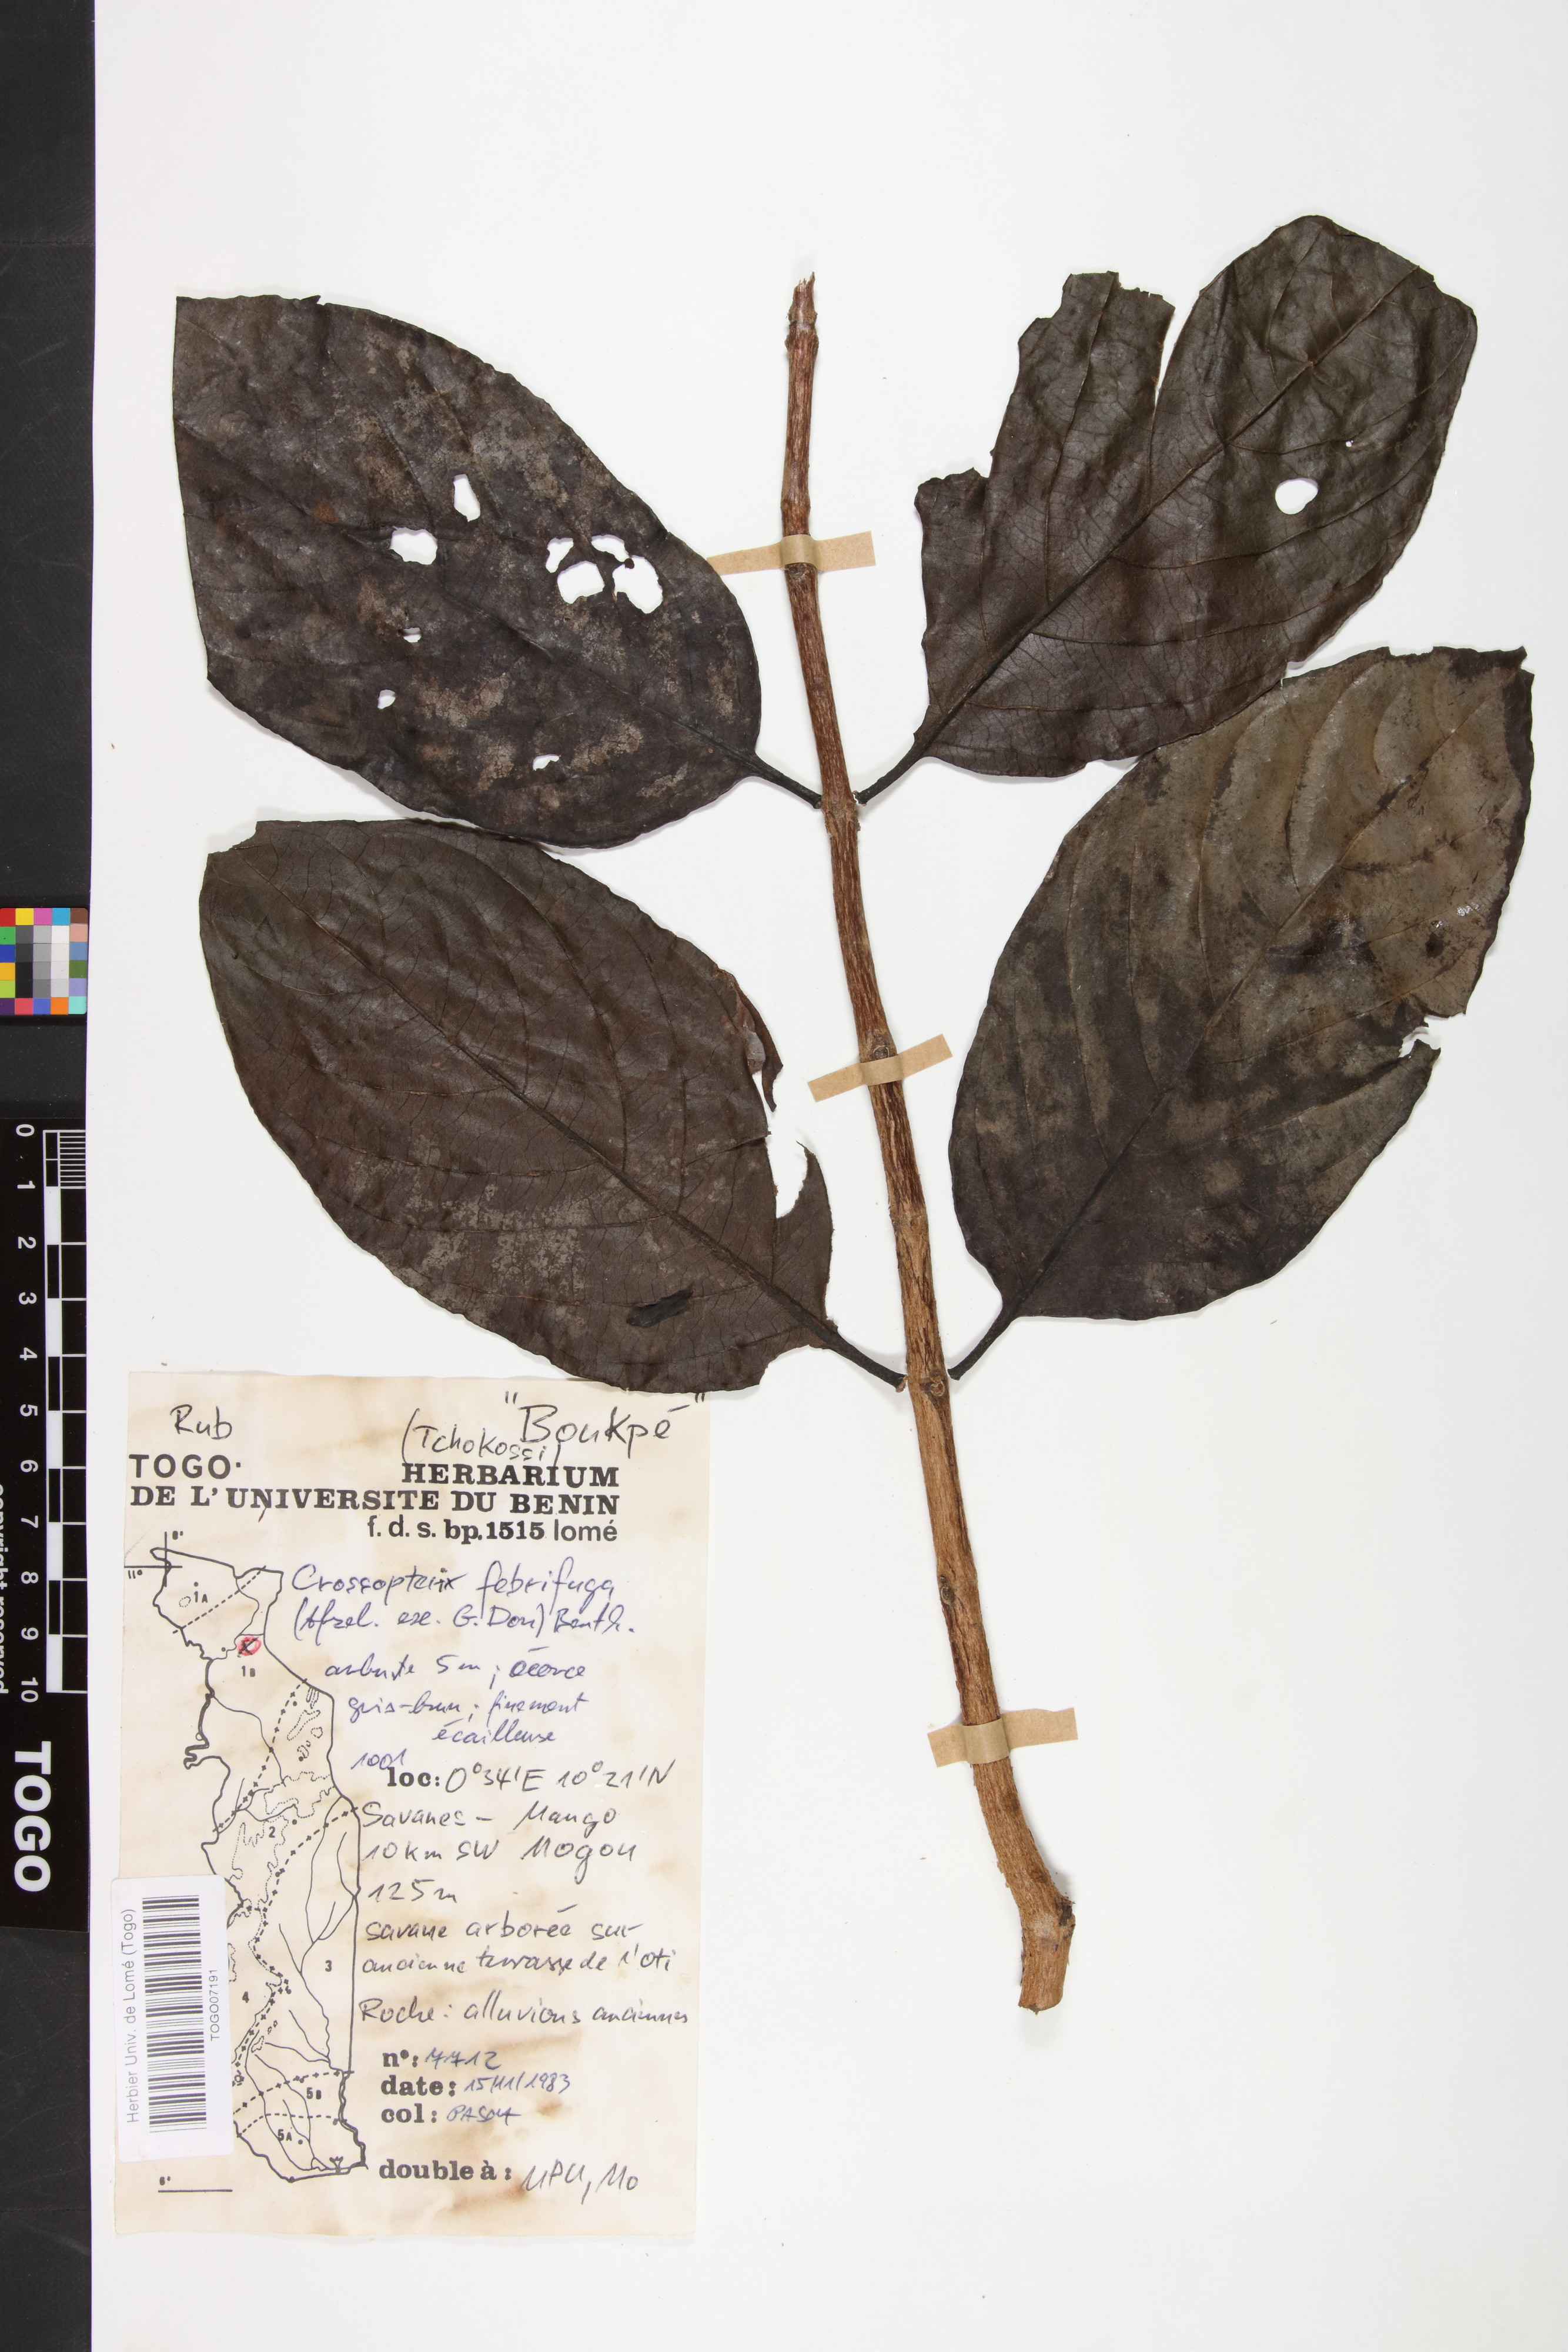 Rub
"Boukpé"
(Tchokossi)
TOGO.
HERBARIUM
DE L'UNIVERSITE DU BENIN
f. d. s. bp. 1515 lomé
8°
11°
1A
1B
2
3
4
5B
5A
6°
Crossopterix febrifuga
(Afzel. ex. G. Don) Benth.
arbuste 5m; écorce
gris-brun; finement
écailleuse
1001
loc: 0°34'E 10°21'N
Savanes - Mango
10km SW Mogou
125m
savane arborée sur
ancienne terrasse de l'oti
Roche: alluvions anciennes
n°: 7712
date: 15/11/1983
col:
double à: MPU, Mo
Herbier Univ. de Lomé (Togo)
TOGO07191
0
1
2
3
4
5
6
7
8
9
10
copyright reserved
TOGO